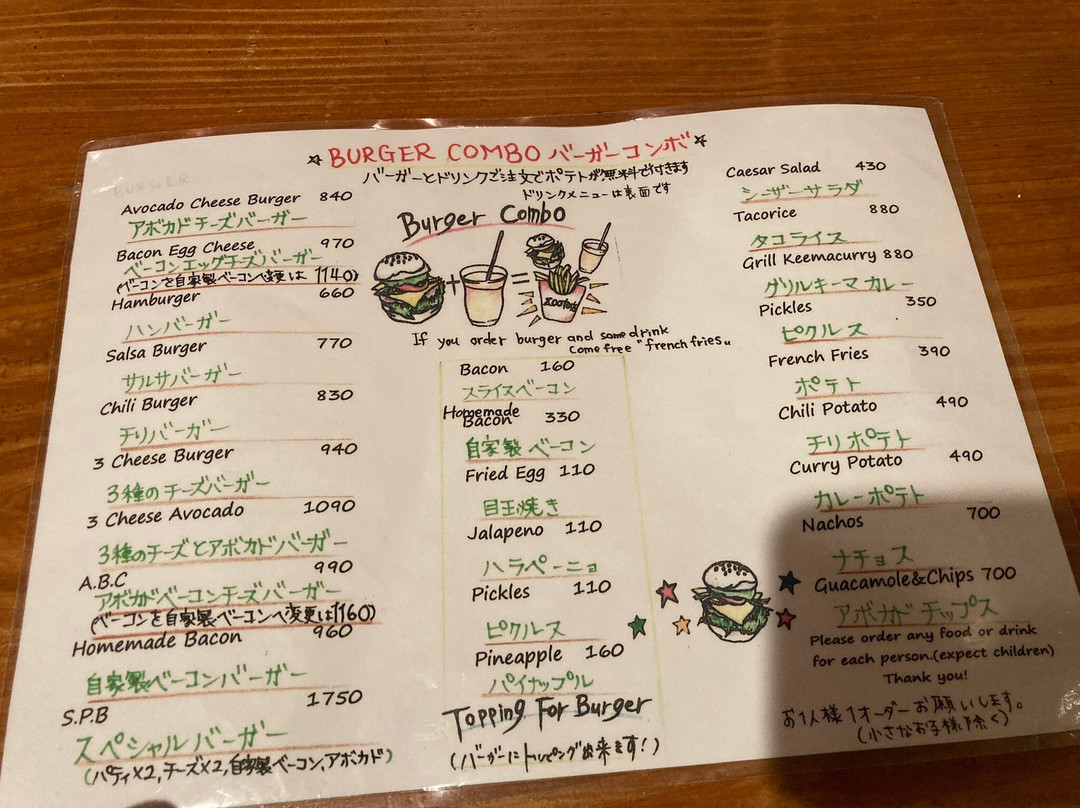 BURGER COMBO バーガーコンボ
バーガーとドリンクご注文でポテトが無料で付きます
ドリンクメニューは裏面です
BURGER
Avocado Cheese Burger 840
アボカドチーズバーガー
Bacon Egg Cheese 970
ベーコンエッグチーズバーガー
(ベーコンを自家製ベーコンへ変更は1140)
Hamburger 660
ハンバーガー
Salsa Burger 770
サルサバーガー
Chili Burger 830
チリバーガー
3 Cheese Burger 940
3種のチーズバーガー
3 Cheese Avocado 1090
3種のチーズとアボカドバーガー
A.B.C 990
アボカドベーコンチーズバーガー
(ベーコンを自家製ベーコンへ変更は1160)
Homemade Bacon 960
自家製ベーコンバーガー
S.P.B 1750
スペシャルバーガー
(パティ×2,チーズ×2,自家製ベーコン,アボカド)
Burger Combo
+ =
If you order burger and some drink
Come free "french fries"
Bacon 160
スライスベーコン
Homemade
Bacon 330
自家製 ベーコン
Fried Egg 110
目玉焼き
Jalapeno 110
ハラペーニョ
Pickles 110
ピクルス
Pineapple 160
パイナップル
Topping For Burger
(バーガーにトッピング出来ます!)
Caesar Salad 430
シーザーサラダ
Tacorice 880
タコライス
Grill Keemacurry 880
グリルキーマカレー
Pickles 350
ピクルス
French Fries 390
ポテト
Chili Potato 490
チリポテト
Curry Potato 490
カレーポテト
Nachos 700
ナチョス
Guacamole&Chips 700
アボカドチップス
Please order any food or drink
for each person.(expect children)
Thank you!
お1人様1オーダーお願いします。
(小さなお子様除く)